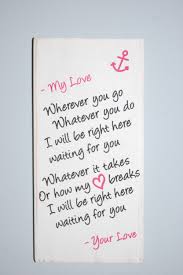 - My Love
Wherever you go
Whatever you do
I will be right here
waiting for you
Whatever it takes
Or how my breaks
I will be right here
waiting for you
- Your Love